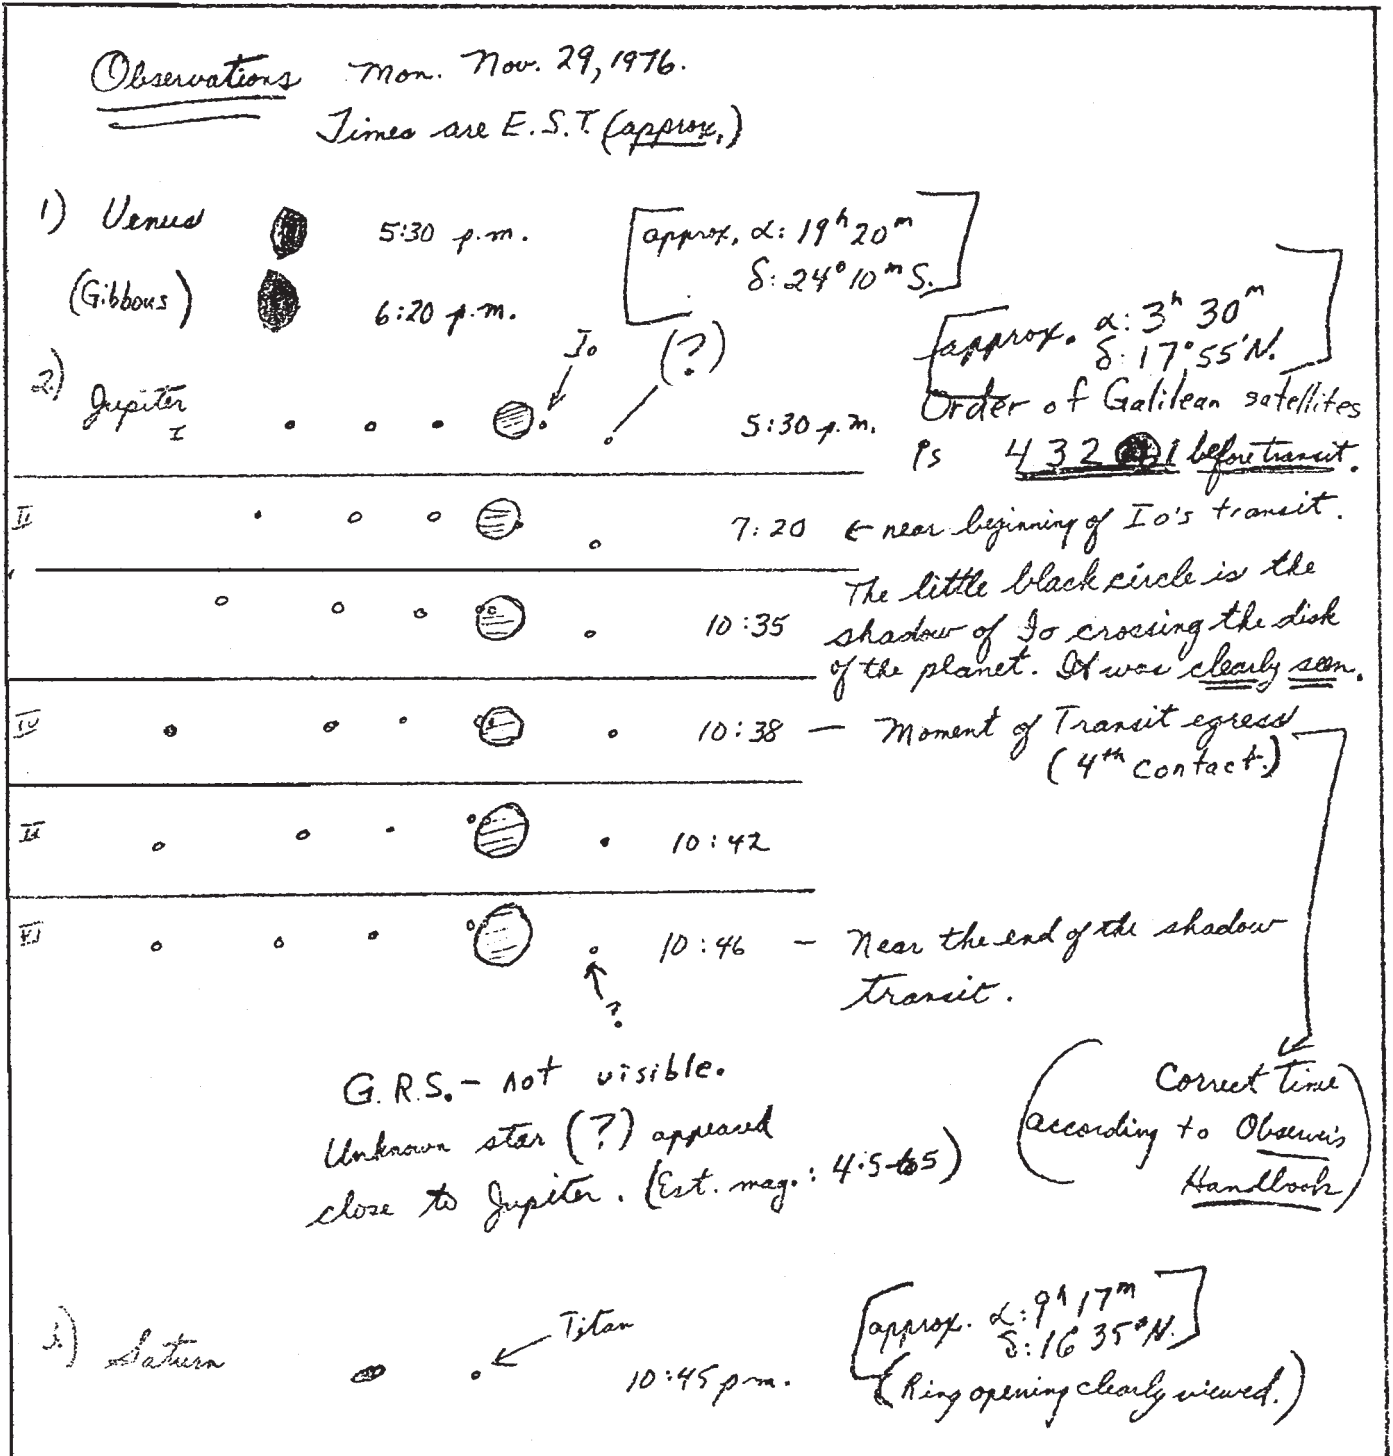 Observations Mon. Nov. 29, 1976.
Times are E.S.T. (approx.)
1) Venus 5:30 p.m. [approx. α: 19ʰ 20ᵐ
δ: 24° 10ᵐ S.]
(Gibbous) 6:20 p.m.
[approx. α: 3ʰ 30ᵐ
δ: 17° 55' N.]
Io (?)
2.) Jupiter
I 5:30 p.m. Order of Galilean satellites
is 4 3 2 1 before transit.
II 7:20 ← near beginning of Io's transit.
10:35 The little black circle is the
shadow of Io crossing the disk
of the planet. It was clearly seen.
IV 10:38 — Moment of Transit egress
(4th contact.)
10:42
VI 10:46 — Near the end of the shadow
transit.
?
G.R.S. - not visible.
Unknown star (?) appeared
close to Jupiter. (Est. mag.: 4.5 to 5)
(Correct time
according to Observer's
Handbook)
3.) Saturn Titan 10:45 p.m. [approx. α: 9ʰ 17ᵐ
δ: 16 35° N.]
(Ring opening clearly viewed.)